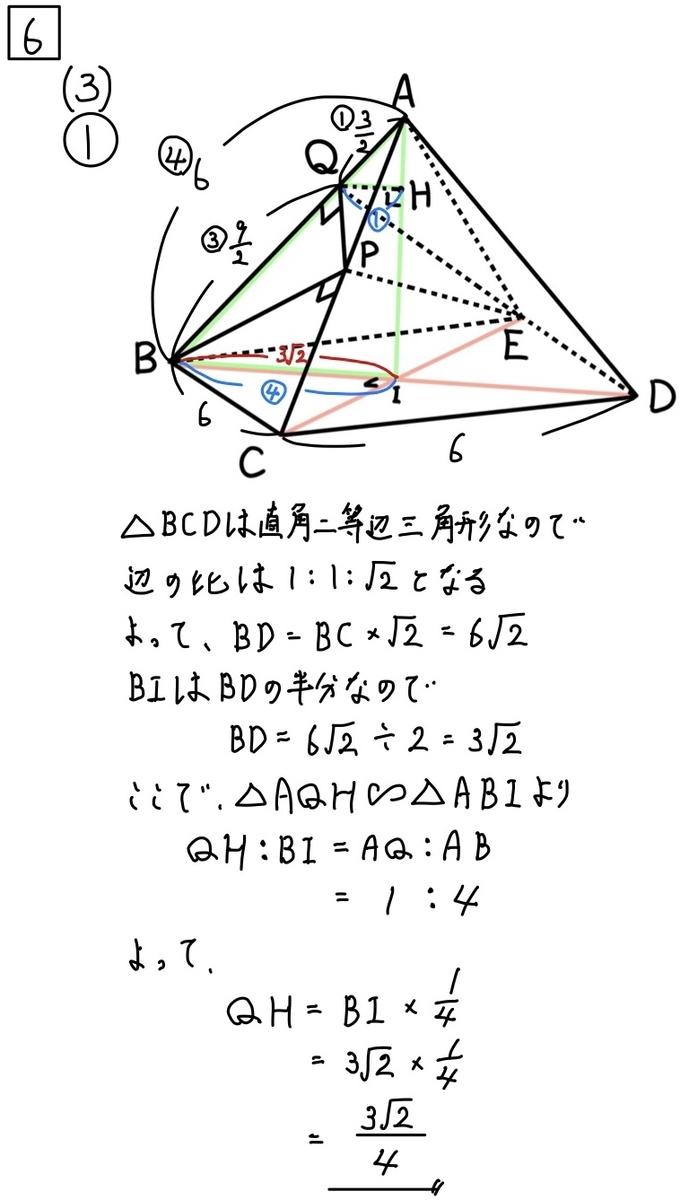 6
(3)
①
A
① 3/2
Q
④ 6
H
①
③ 9/2
P
B
3√2
E
④
I
D
6
C
6
△BCDは直角二等辺三角形なので
辺の比は 1:1:√2 となる
よって、BD = BC × √2 = 6√2
BIはBDの半分なので
BD = 6√2 ÷ 2 = 3√2
ここで、△AQH∽△ABIより
QH:BI = AQ:AB
= 1 : 4
よって、
QH = BI × 1/4
= 3√2 × 1/4
= 3√2/4